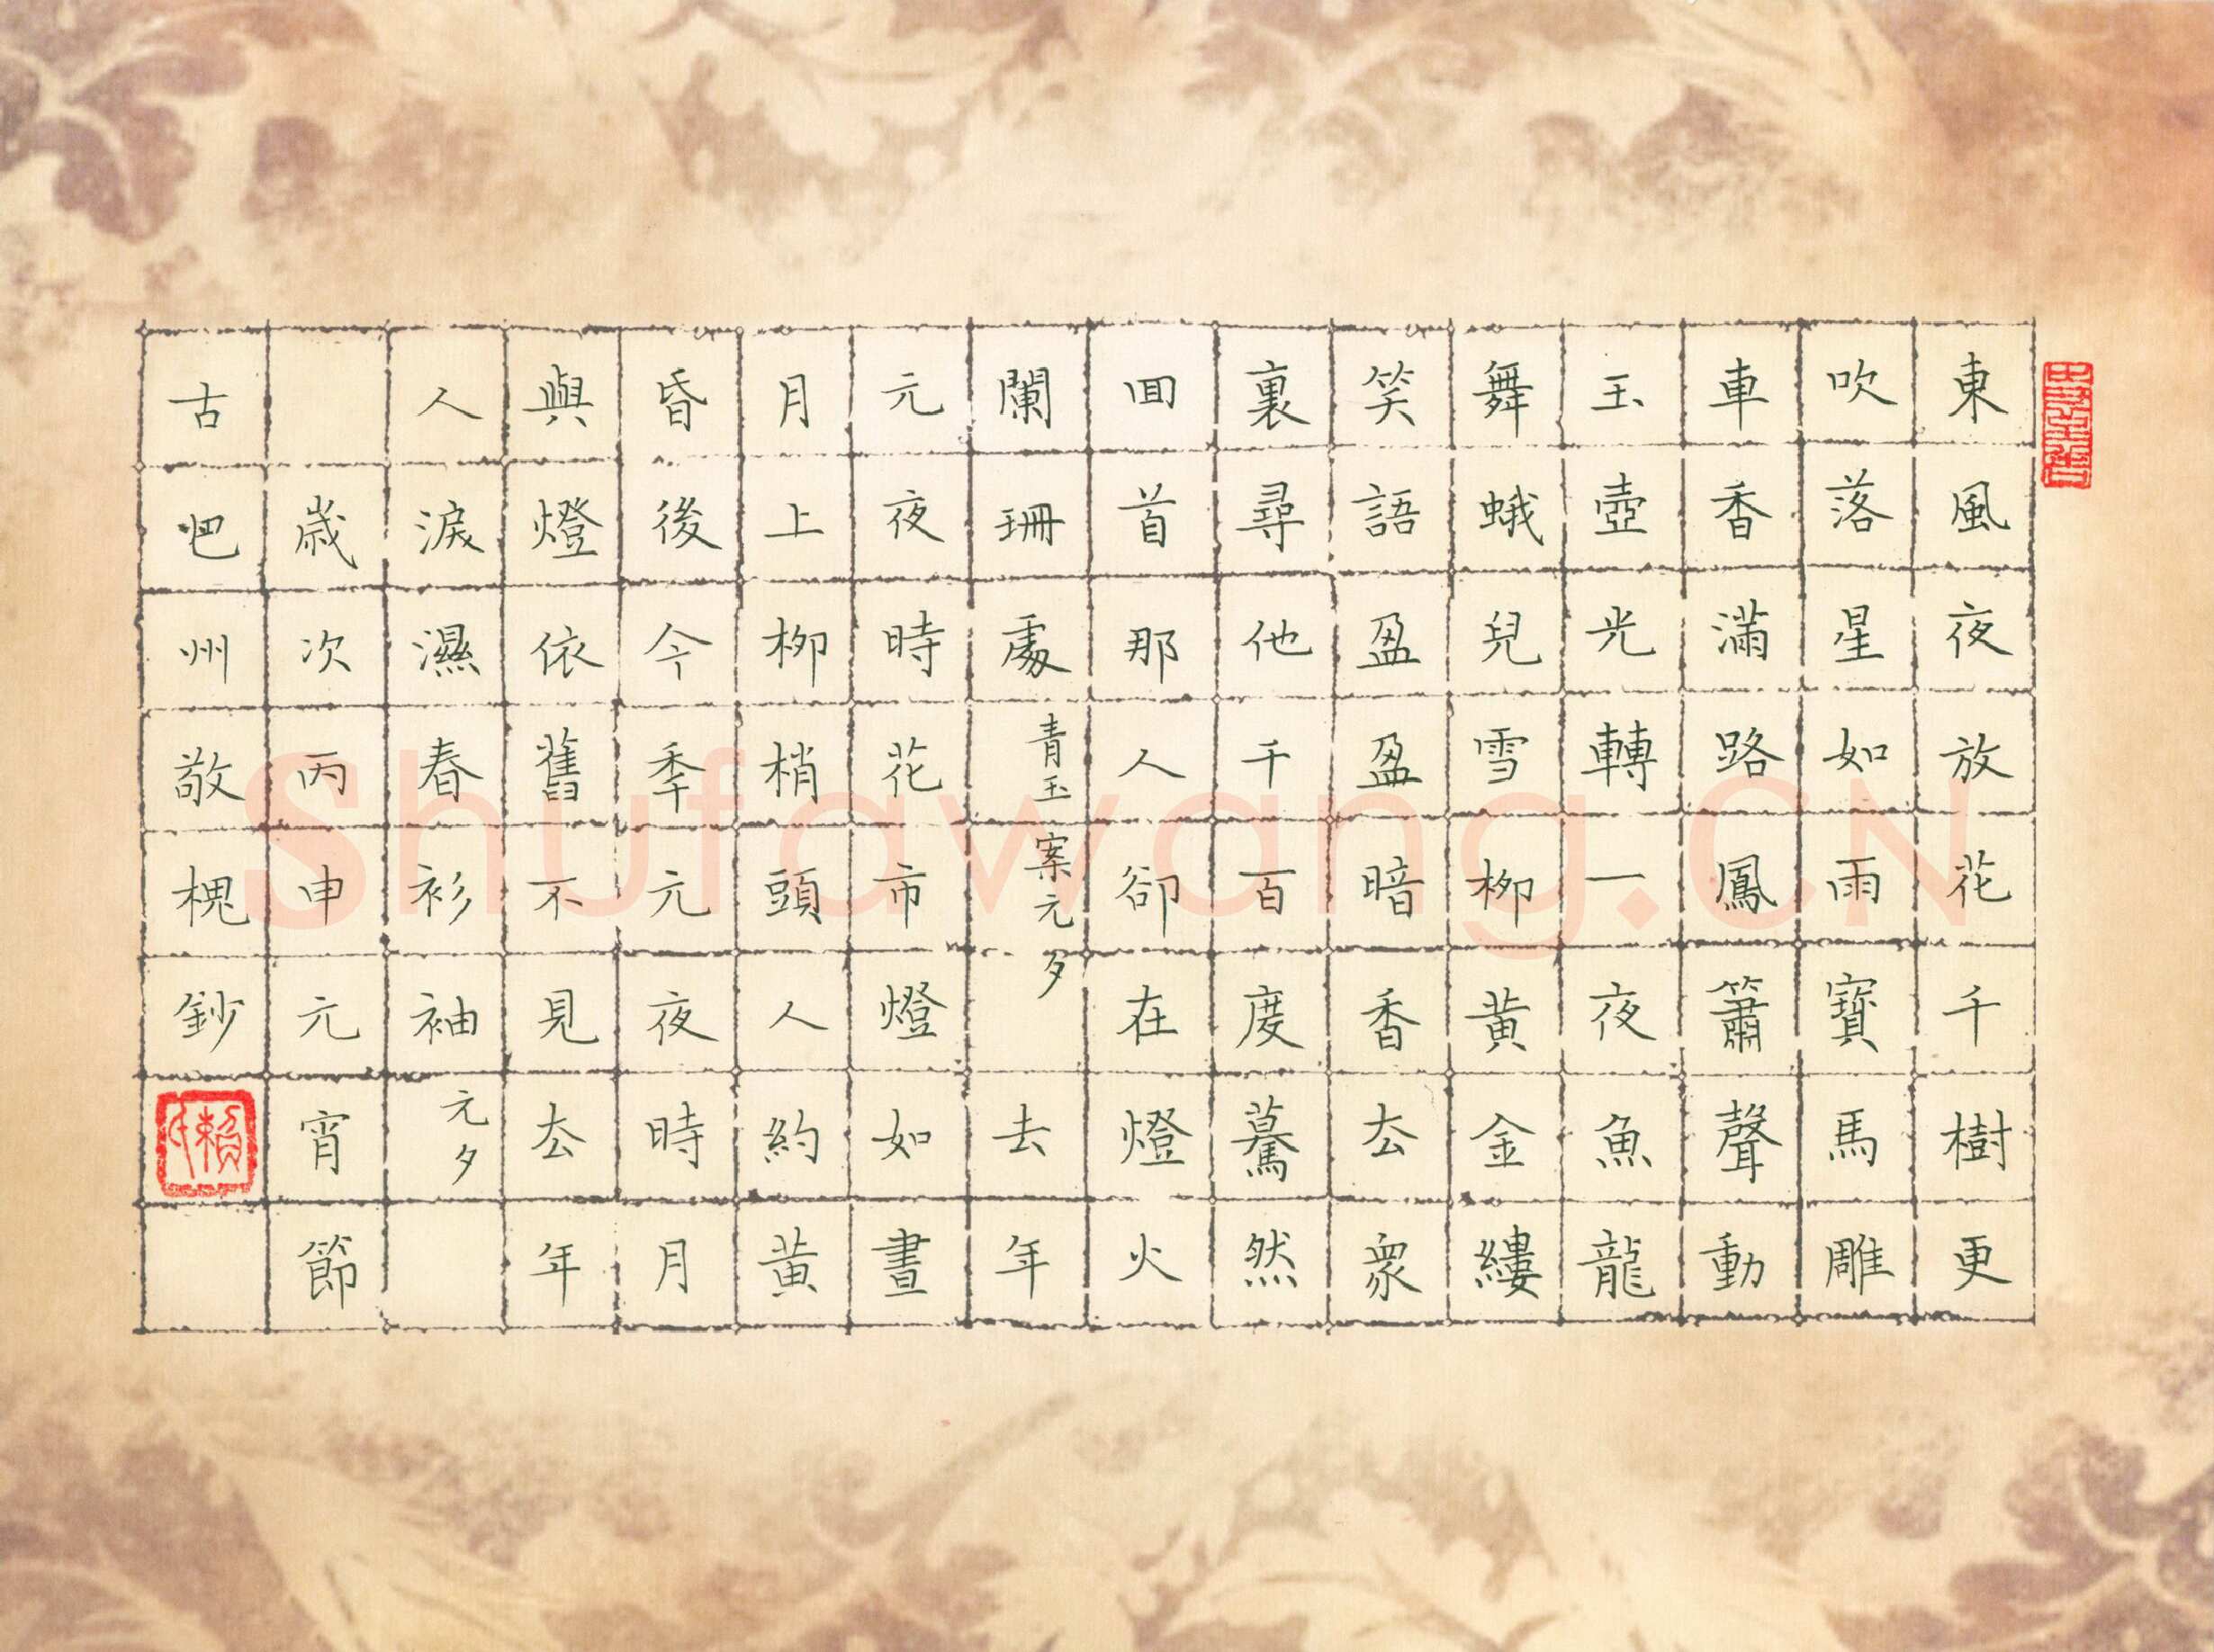 東風夜放花千樹更
吹落星如雨寶馬雕
車香滿路鳳簫聲動
玉壺光轉一夜魚龍
舞蛾兒雪柳黃金縷
笑語盈盈暗香厺眾
裏尋他千百度驀然
回首那人卻在燈火
闌珊處青玉案元夕去年
元夜時花市燈如晝
月上柳梢頭人約黃
昏後今秊元夜時月
與燈依舊不見厺年
人淚濕春衫袖元夕
歲次丙申元宵節
古巴州敬槐鈔
賴氏
Shufawang.CN